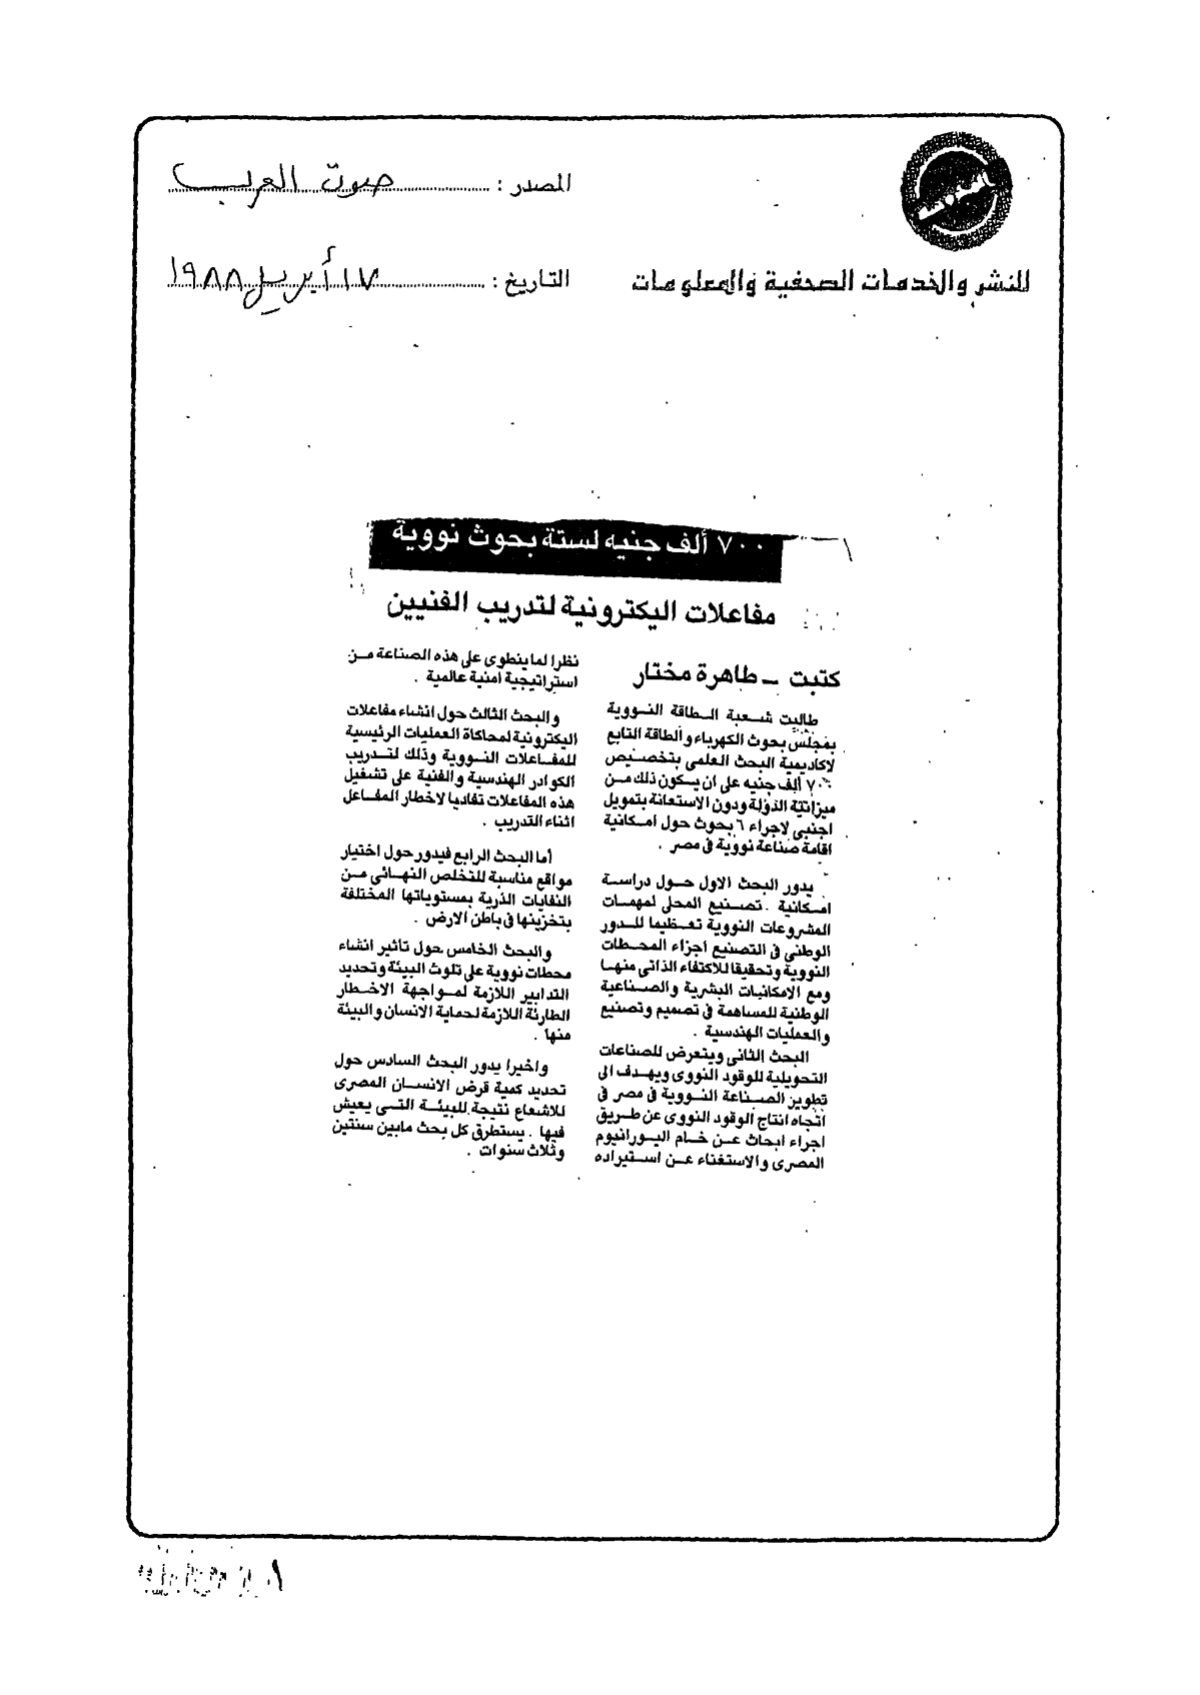 المصدر : صوت العرب
للنشر والخدمات الصحفية والمعلومات
التاريخ : ١٧ أبريل ١٩٨٨
٧٠٠ ألف جنيه لستة بحوث نووية
مفاعلات اليكترونية لتدريب الفنيين
كتبت ــ طاهرة مختار
طالبت شعبة الطاقة النووية
بمجلس بحوث الكهرباء والطاقة التابع
لاكاديمية البحث العلمى بتخصيص
٧٠٠ ألف جنيه على ان يكون ذلك من
ميزانية الدولة ودون الاستعانة بتمويل
اجنبى لاجراء ٦ بحوث حول امكانية
اقامة صناعة نووية فى مصر .
يدور البحث الاول حول دراسة
امكانية . تصنيع المحلى لمهمات
المشروعات النووية تعظيما للدور
الوطنى فى التصنيع اجزاء المحطات
النووية وتحقيقا للاكتفاء الذاتى منها
ومع الامكانيات البشرية والصناعية
الوطنية للمساهمة فى تصميم وتصنيع
والعمليات الهندسية .
البحث الثانى ويتعرض للصناعات
التحويلية للوقود النووى ويهدف الى
تطوير الصناعة النووية فى مصر فى
اتجاه انتاج الوقود النووى عن طريق
اجراء ابحاث عن خام اليورانيوم
المصرى والاستغناء عن استيراده
نظرا لما ينطوى على هذه الصناعة من
استراتيجية امنية عالمية .
والبحث الثالث حول انشاء مفاعلات
اليكترونية لمحاكاة العمليات الرئيسية
للمفاعلات النووية وذلك لتدريب
الكوادر الهندسية والفنية على تشغيل
هذه المفاعلات تفاديا لاخطار المفاعل
اثناء التدريب .
أما البحث الرابع فيدور حول اختيار
مواقع مناسبة للتخلص النهائى من
النفايات الذرية بمستوياتها المختلفة
بتخزينها فى باطن الارض .
والبحث الخامس حول تاثير انشاء
محطات نووية على تلوث البيئة وتحديد
التدابير اللازمة لمواجهة الاخطار
الطارئة اللازمة لحماية الانسان والبيئة
منها .
واخيرا يدور البحث السادس حول
تحديد كمية قرض الانسان المصرى
للاشعاع نتيجة للبيئة التى يعيش
فيها . يستطرق كل بحث مابين سنتين
وثلاث سنوات .